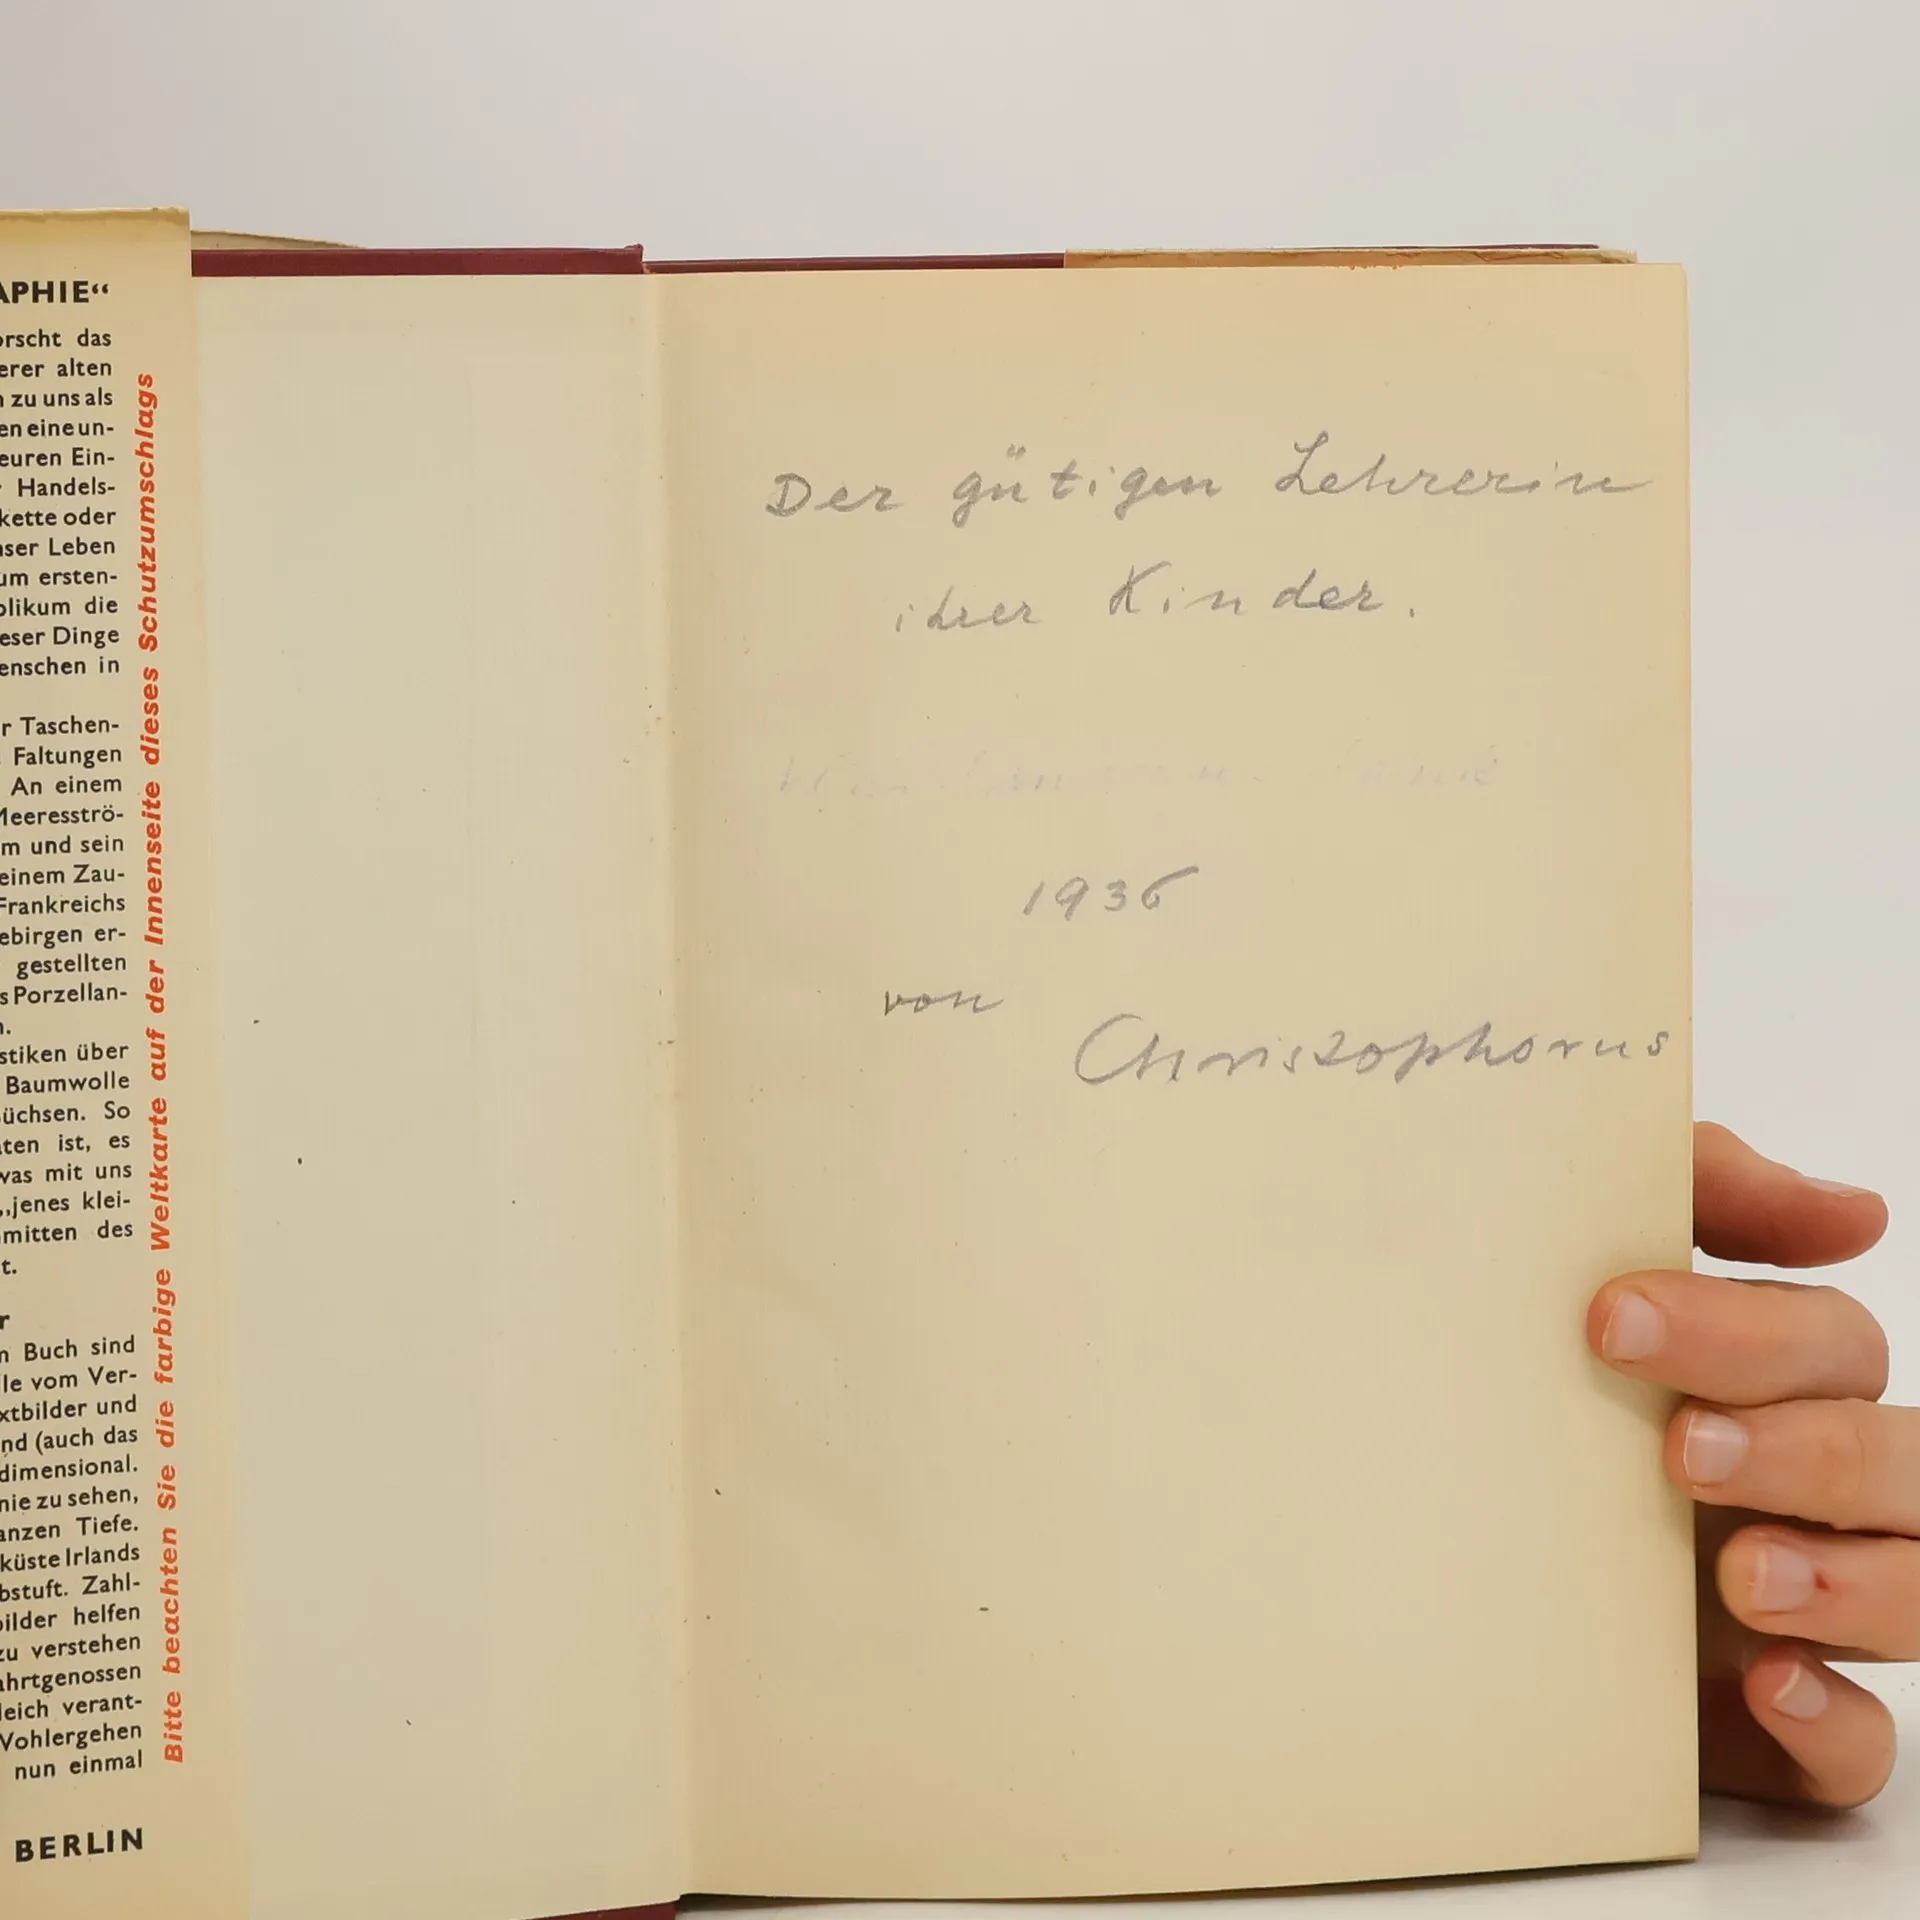 APHIE“
orscht das
erer alten
n zu uns als
en eine un-
euren Ein-
r Handels-
kette oder
nser Leben
um ersten-
blikum die
eser Dinge
enschen in
r Taschen-
Faltungen
An einem
Meeresströ-
m und sein
einem Zau-
Frankreichs
ebirgen er-
gestellten
s Porzellan-
n.
stiken über
Baumwolle
üchsen. So
ten ist, es
was mit uns
„jenes klei-
mitten des
t.
r
n Buch sind
lle vom Ver-
xtbilder und
nd (auch das
dimensional.
nie zu sehen,
anzen Tiefe.
küste Irlands
bstuft. Zahl-
bilder helfen
zu verstehen
ahrtgenossen
leich verant-
Wohlergehen
nun einmal
BERLIN
Bitte beachten Sie die farbige Weltkarte auf der Innenseite dieses Schutzumschlags
Der gütigen Lehrerin
ihrer Kinder.
1936
von
Christophorus